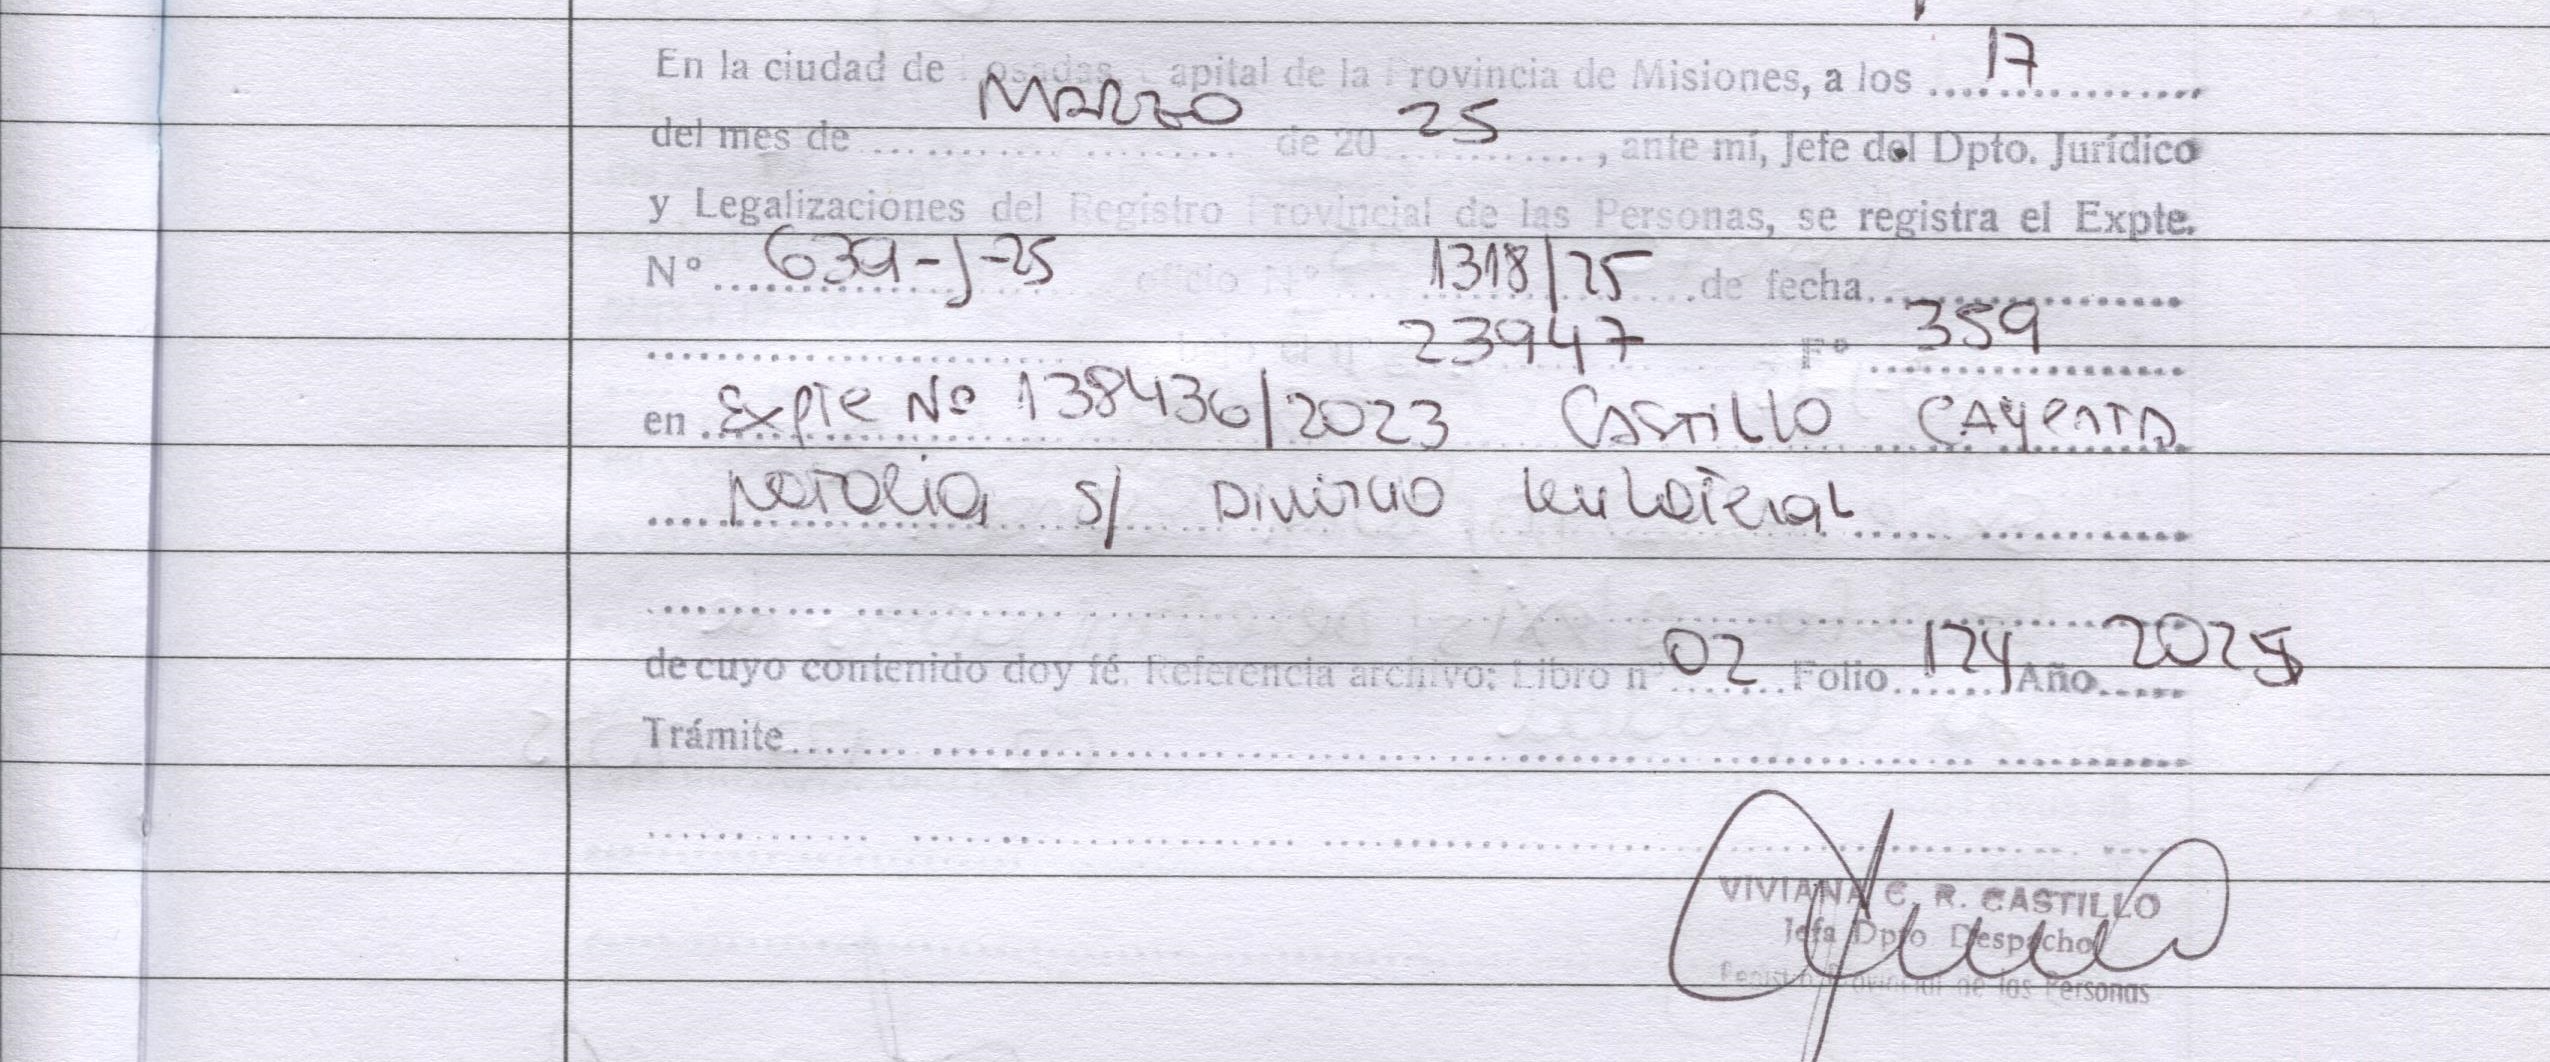 En la ciudad de Posadas, Capital de la Provincia de Misiones, a los 17
del mes de Marzo de 20 25, ante mí, Jefe del Dpto. Jurídico
y Legalizaciones del Registro Provincial de las Personas, se registra el Expte.
Nº 639-J-25 oficio Nº 1318/25 de fecha
23947 Fº 359
en Expte Nº 138436/2023 Castillo
Natalia s/ Divorcio Unilateral
de cuyo contenido doy fé. Referencia archivo: Libro nº 02 Folio 124 Año 2025
Trámite
VIVIANA C. R. CASTILLO
Jefa Dpto Despacho
Registro Provincial de las Personas